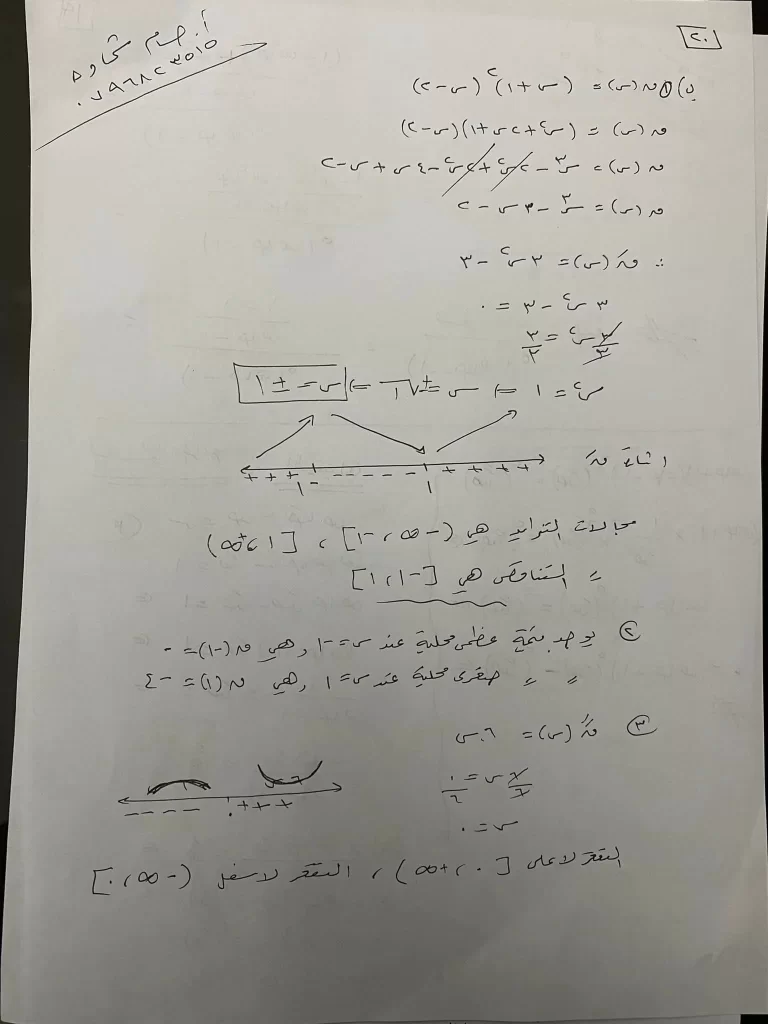 أ. حسام شحادة
٠٧٩٦٨٢٣٥١٥
٢٠
ب) ① ق(س) = (س+١)٢ (س-٢)
ق(س) = (س٢+٢س+١)(س-٢)
ق(س) = س٣ - ٢س٢ + ٢س٢ - ٤س + س - ٢
ق(س) = س٣ - ٣س - ٢
∴ قَ(س) = ٣س٢ - ٣
٣س٢ - ٣ = ٠
٣س٢/٣ = ٣/٣
س٢ = ١ ⇐ س = ±√١ ⇐ س = ±١
اشارة قَ
+ + + -١ - - - - - ١ + + + +
مجالات التزايد هي (-∞، -١] ، [١، +∞)
〃 التناقص هي [-١، ١]
② يوجد قيمة عظمى محلية عند س = -١ وهي ق(-١) = ٠
〃 〃 صغرى محلية عند س = ١ وهي ق(١) = -٤
③ قً(س) = ٦س
٦س/٦ = ٠/٦
س = ٠
- - - - ٠ + + +
التقعر لاعلى [٠، +∞) ، التقعر لاسفل (-∞، ٠]